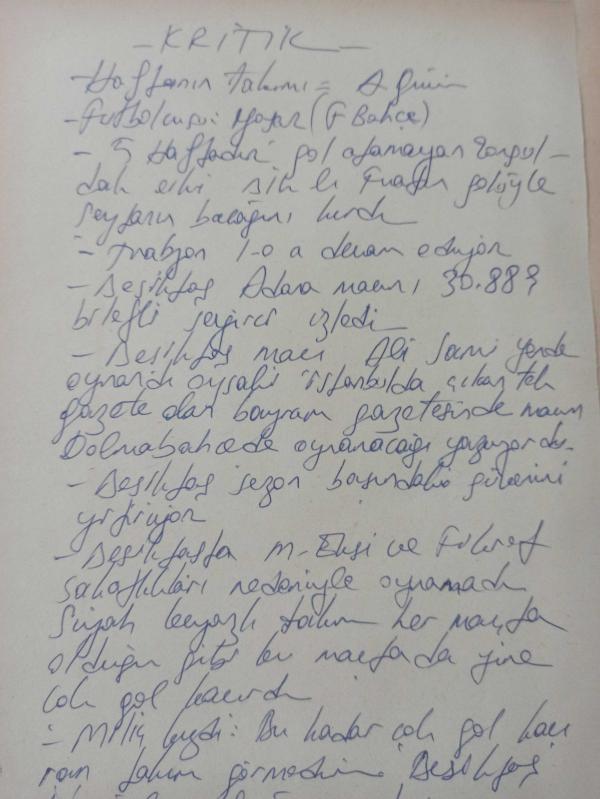 - KRİTİK -
- Haftanın takımı = A.Gücü
- Futbolcusu: Yaşar (F Bahçe)
- 5 Haftadır gol atamayan Zongul-
dak eski golüyle
şeytanın bacağını kırdı
- Trabzon 1-0 a devam ediyor
- Beşiktaş Adana maçını 30.889
biletli seyirci izledi
- Beşiktaş maçı Ali Sami yende
oynandı oysaki İstanbulda çıkan tek
gazete olan bayram gazetesinde maçın
Dolmabahçede oynanacağı yazıyordu.
- Beşiktaş sezon başındaki güvenini
yitiriyor
- Beşiktaşta M. Ekşi ve Fikret
sakatlıkları nedeniyle oynamadı
Siyah beyazlı takım her maçta
olduğu gibi bu maçtada yine
çok gol kaçırdı
- Miliç kızdı: Bu kadar çok gol kaçı
ran takım görmedim. Beşiktaş